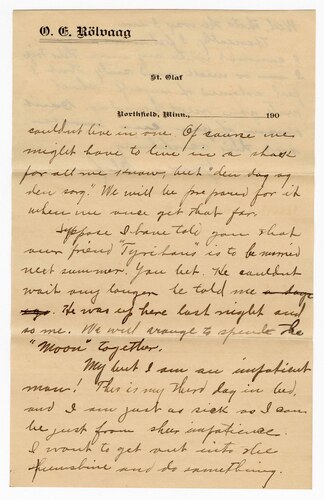 O. E. Rölvaag
St. Olaf
Northfield, Minn., 190
couldn't live in one. Of course we
might have to live in a shack
for all we know, but "den dag og
den sorg." We will be prepared for it
when we once get that far.
Suppose I have told you that
our friend "Tyrihans" is to be married
next summer. You bet. He couldn't
wait any longer he told me a days
ago. He was up here last night and
so me. We will arrange to spend the
"Moon" together.
My but I am an impatient
man! This is my third day in bed,
and I am just as sick as I can
be just from sheer impatience.
I want to get out into the
sunshine and do something.